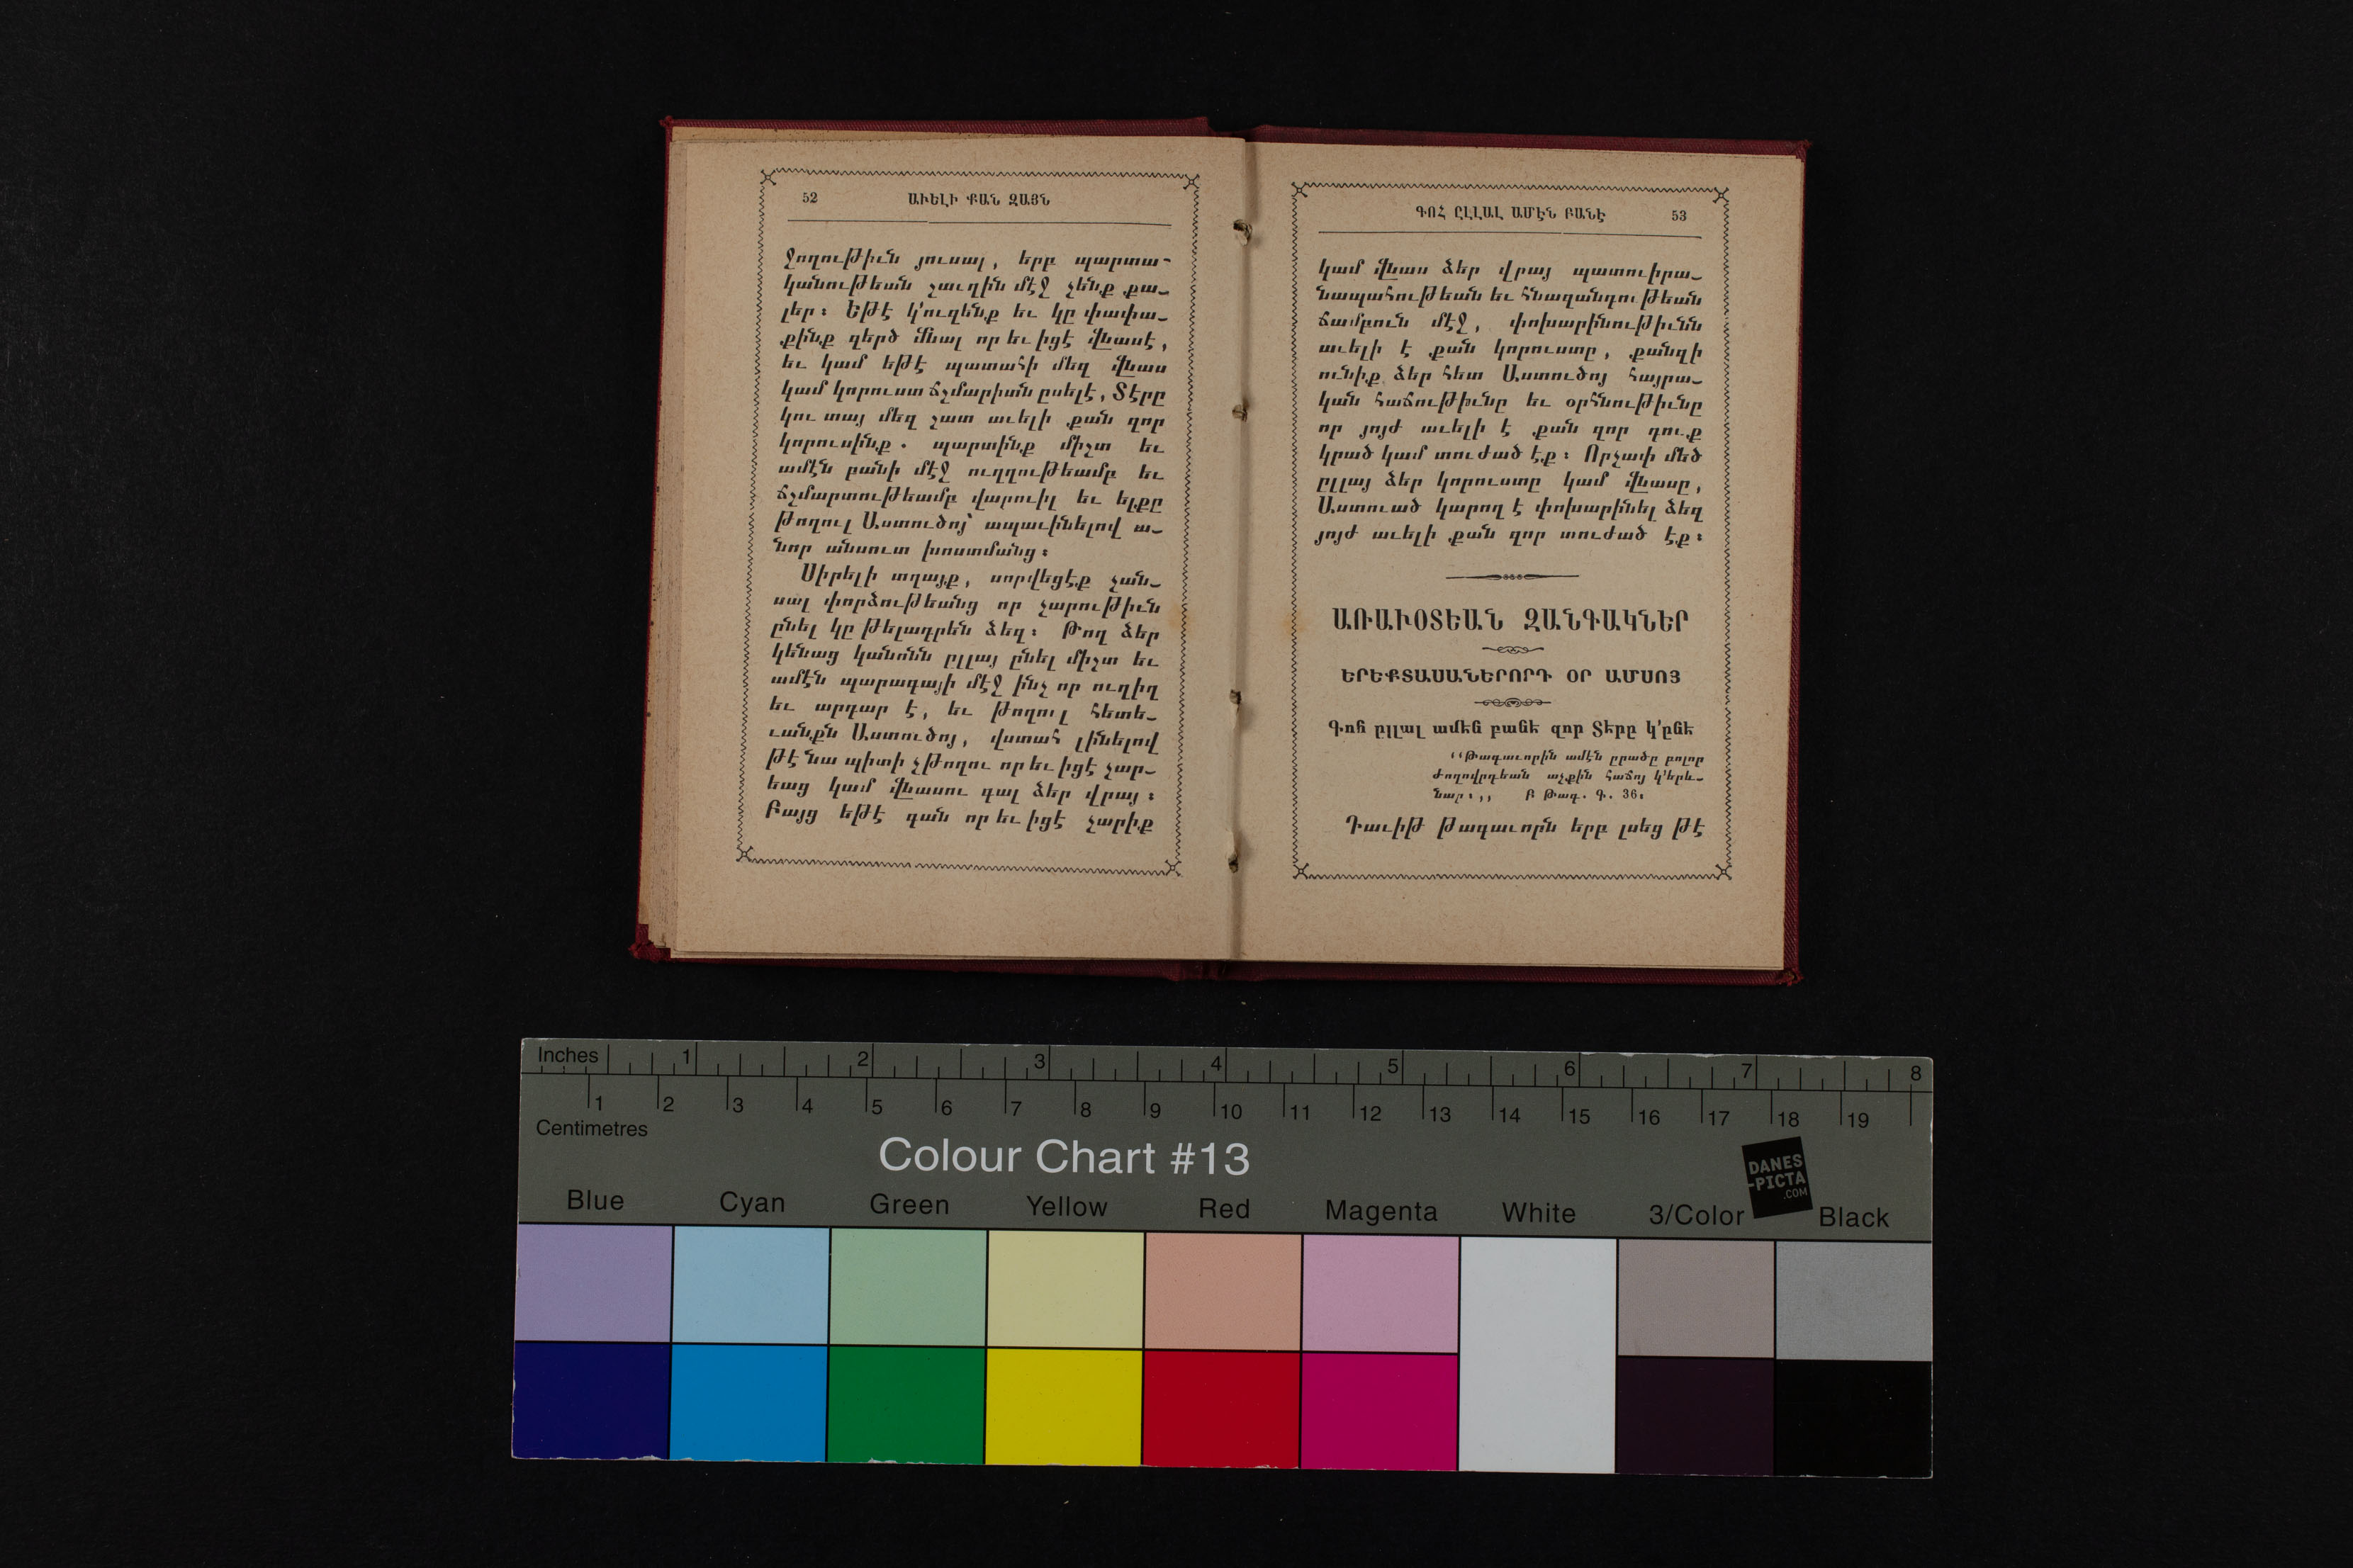 52 ԱՒԵԼԻ ՔԱՆ ԶԱՅՆ
ջողութիւն յուսալ, երբ պարտա-
կանութեան շաւղին մէջ չենք քա-
լեր։ Եթէ կ'ուզենք եւ կը փափա-
քինք զերծ մնալ որ եւ իցէ վնասէ,
եւ կամ եթէ պատահի մեզ վնաս
կամ կորուստ ճշմարիտն ըսելէ, Տէրը
կու տայ մեզ շատ աւելի քան զոր
կորուսինք. պարտինք միշտ եւ
ամէն բանի մէջ ուղղութեամբ եւ
ճշմարտութեամբ վարուիլ եւ ելքը
թողուլ Աստուծոյ՝ ապաւինելով ա-
նոր անսուտ խոստմանց։
Սիրելի տղայք, սորվեցէք չան-
սալ փորձութեանց որ չարութիւն
ընել կը թելադրեն ձեզ։ Թող ձեր
կենաց կանոնն ըլլայ ընել միշտ եւ
ամէն պարագայի մէջ ինչ որ ուղիղ
եւ արդար է, եւ թողուլ հետե-
ւանքն Աստուծոյ, վստահ լինելով
թէ նա պիտի չթողու որ եւ իցէ չար-
եաց կամ վնասու գալ ձեր վրայ։
Բայց եթէ գան որ եւ իցէ չարիք
ԳՈՀ ԸԼԼԱԼ ԱՄԷՆ ԲԱՆԷ 53
կամ վնաս ձեր վրայ պատուիրա-
նապահութեան եւ հնազանդութեան
ճամբուն մէջ, փոխարինութիւնն
աւելի է քան կորուստը, քանզի
ունիք ձեր հետ Աստուծոյ հայրա-
կան հաճութիւնը եւ օրհնութիւնը
որ յոյժ աւելի է քան զոր դուք
կրած կամ տուժած էք։ Որչափ մեծ
ըլլայ ձեր կորուստը կամ վնասը,
Աստուած կարող է փոխարինել ձեզ
յոյժ աւելի քան զոր տուժած էք։
ԱՌԱՒՕՏԵԱՆ ԶԱՆԳԱԿՆԵՐ
ԵՐԵՔՏԱՍԱՆԵՐՈՐԴ ՕՐ ԱՄՍՈՅ
Գոհ ըլլալ ամէն բանէ զոր Տէրը կ'ընէ
‘‘Թագաւորին ամէն ըրածը բոլոր
ժողովրդեան աչքին հաճոյ կ'երև-
նար։,, Բ Թագ. Գ. 36։
Դաւիթ թագաւորն երբ լսեց թէ
Inches 1 2 3 4 5 6 7 8
1 2 3 4 5 6 7 8 9 10 11 12 13 14 15 16 17 18 19
Centimetres
Colour Chart #13
DANES
-PICTA
.COM
Blue Cyan Green Yellow Red Magenta White 3/Color Black